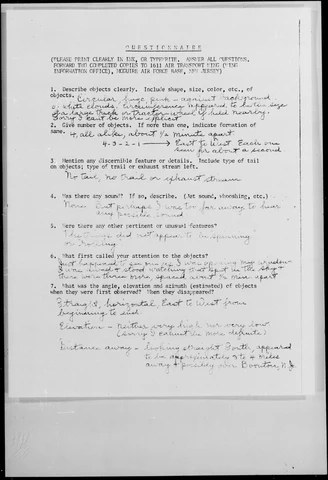 QUESTIONNAIRE
(PLEASE PRINT CLEARLY IN INK, OR TYPEWRITE. ANSWER ALL QUESTIONS.
FORWARD TWO COMPLETED COPIES TO 1611 AIR TRANSPORT WING (WING
INFORMATION OFFICE), MCGUIRE AIR FORCE BASE, NEW JERSEY)
1. Describe objects clearly. Include shape, size, color, etc., of
objects.
Circular, huge, against background
of white clouds. Circumference appeared to be the size
of a large truck or tractor wheel if held nearby.
Sorry I can't be more explicit
2. Give number of objects. If more than one, indicate formation of
same.
4, all alike, about 1/2 minute apart
4-3-2-1 East to West. Each one
seen for about a second
3. Mention any discernible feature or details. Include type of tail
on objects; type of trail or exhaust stream left.
No tail, no trail or exhaust stream
4. Was there any sound? If so, describe. (Jet sound, whooshing, etc.)
None. But perhaps I was too far away to hear
any possible sound
5. Were there any other pertinent or unusual features?
did not appear to be spinning
or
6. What first called your attention to the objects?
Just happened to see as I was opening my window
I was and stood watching that spot in the sky &
there were three more spaced about 1/2 min. apart
7. What was the angle, elevation and azimuth (estimated) of objects
when they were first observed? When they disappeared?
Straight, horizontal East to West from
beginning to end.
Elevation - neither very high nor very low
(Sorry I cannot be more definite)
Distance away - looking straight South, appeared
to be approximately 3 to 4 miles
away & possibly over Boonton, N.J.